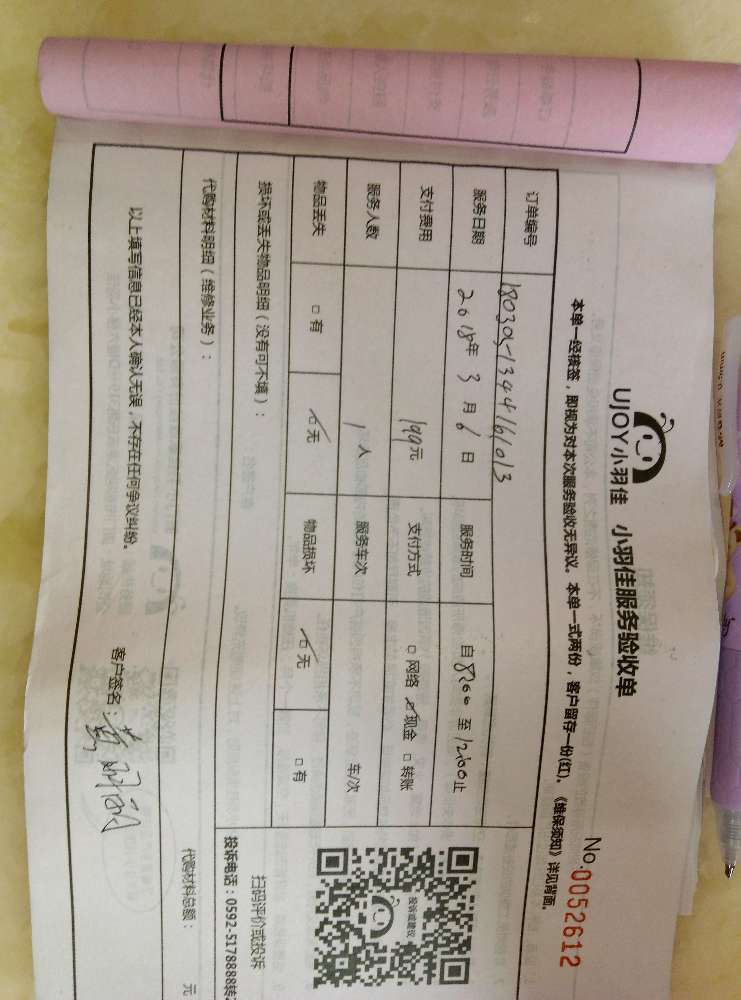 UJOY小羽佳 小羽佳服务验收单
No.0052612
本单一经核签，即视为对本次服务验收无异议。本单一式两份，客户留存一份(红)。《维保须知》详见背面。
订单编号 1803051344161013
服务日期 2018年3月6日 服务时间 自8:00至12:00止
支付费用 199元 支付方式 □网络 ☑现金 □转账
服务人数 1人 服务车次 车/次
物品丢失 □有 ☑无 物品损坏 ☑无 □有
损坏或丢失物品明细（没有可不填）：
扫码评价或投诉
投诉电话：0592-5178888转
投诉或建议
代购材料明细（维修业务）：
代购材料总额： 元
以上填写信息已经本人确认无误，不存在任何争议纠纷。
客户签名：